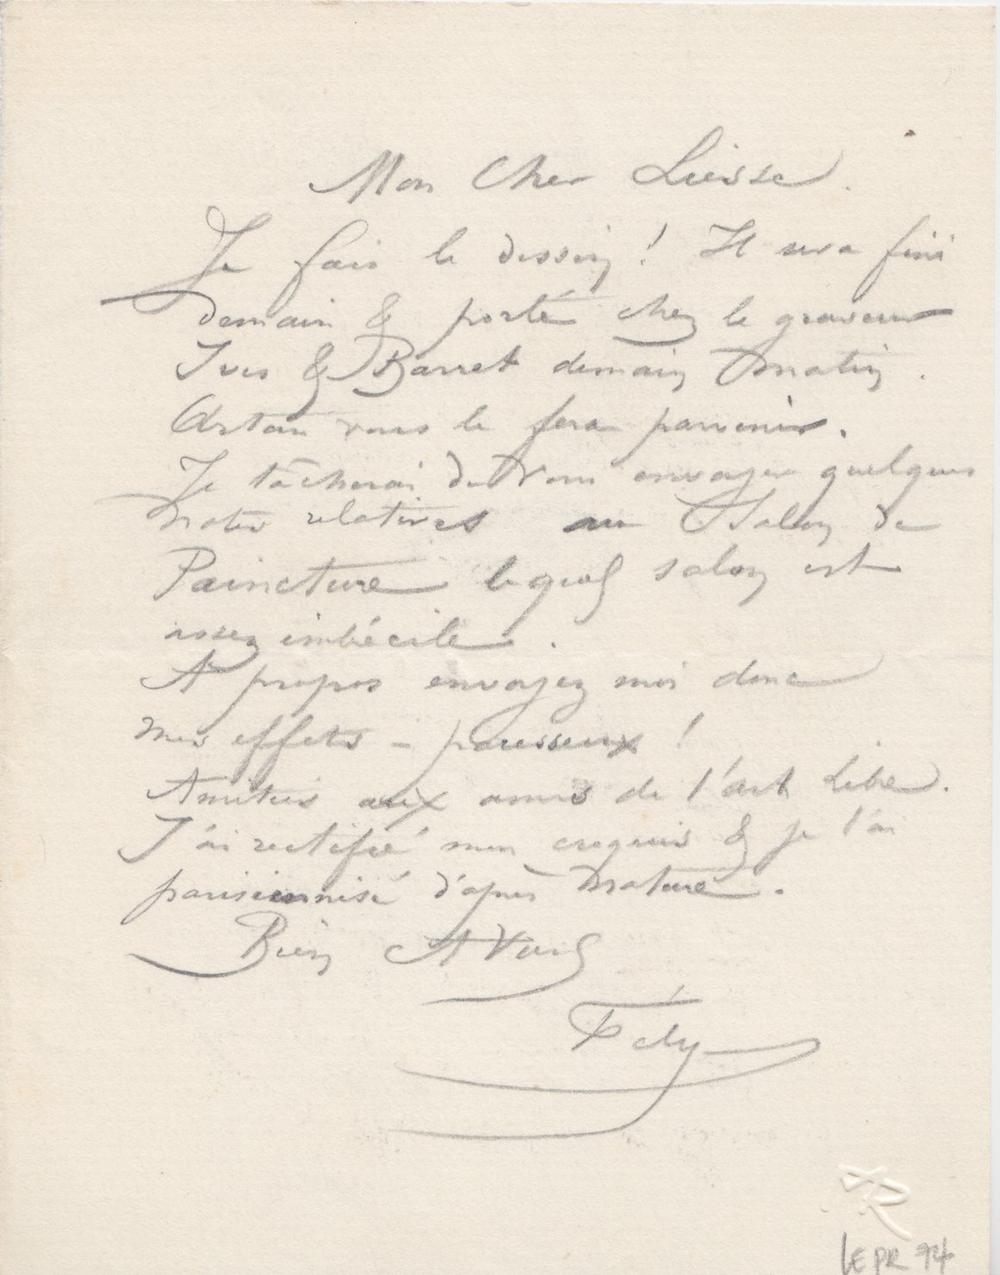 Mon Cher Liesse.
Je fais le dessin ! Il sera fini
demain & porté chez le graveur
Yves & Barret demain matin.
Artan vous le fera parvenir.
Je tâcherai de vous envoyer quelques
notes relatives au Salon de
Paincture lequel salon est
assez imbécile.
A propos envoyez moi donc
mes effets – paresseux !
Amitiés aux amis de l'art Libre.
J'ai rectifié mon croquis & je l'ai
parisiennisé d'après nature.
Bien A Vous
Fély
R
LEPR 94